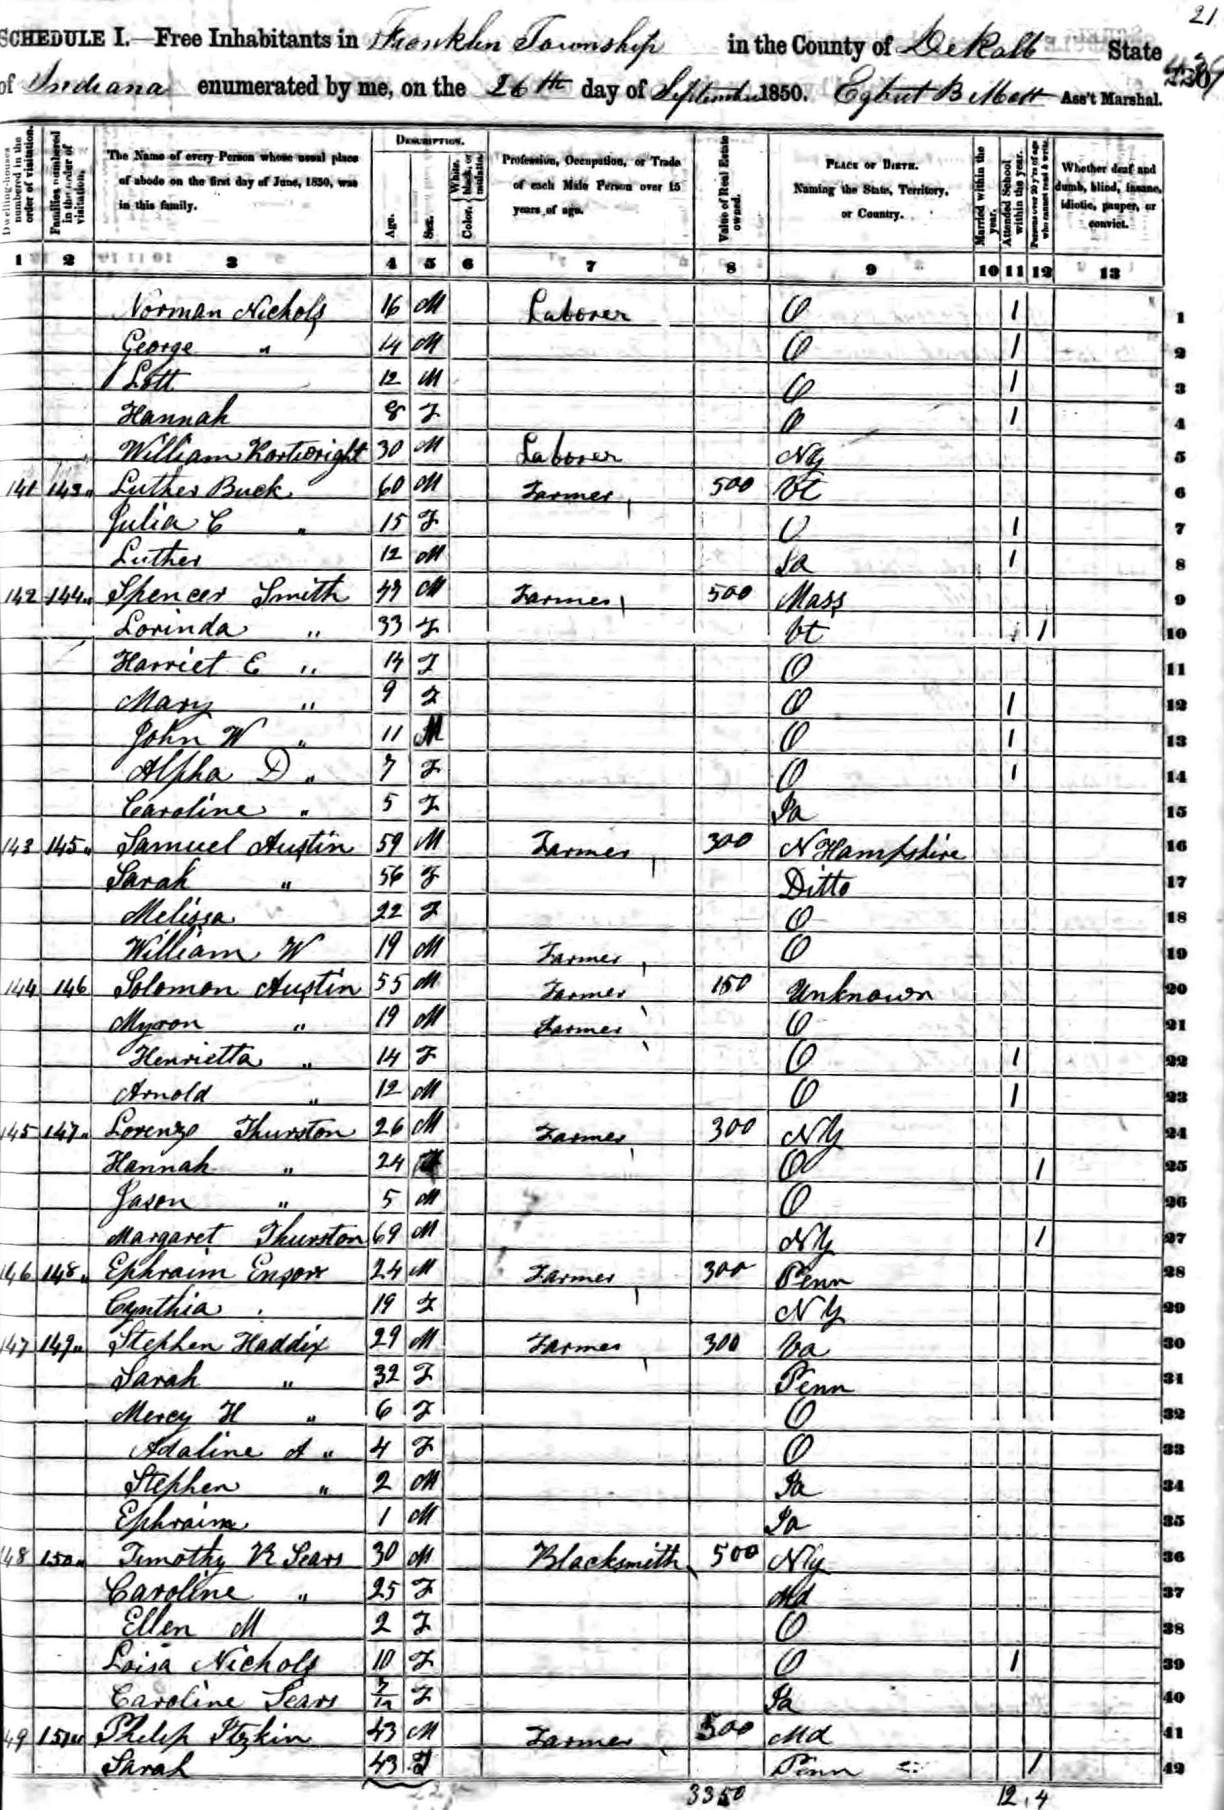 21
SCHEDULE I.—Free Inhabitants in Franklin Township in the County of DeKalb State
of Indiana enumerated by me, on the 26th day of September 1850. Egbert B Mott Ass't Marshal.
Dwelling-houses numbered in the order of visitation.
Families numbered in the order of visitation.
The Name of every Person whose usual place of abode on the first day of June, 1850, was in this family.
Description.
Age.
Sex.
Color, White, black, or mulatto.
Profession, Occupation, or Trade of each Male Person over 15 years of age.
Value of Real Estate owned.
Place of Birth. Naming the State, Territory, or Country.
Married within the year.
Attended School within the year.
Persons over 20 y'rs of age who cannot read & write.
Whether deaf and dumb, blind, insane, idiotic, pauper, or convict.
1 2 3 4 5 6 7 8 9 10 11 12 13
Norman Nichols 16 M Laborer O 1 1
George " 14 M O 1 2
Lott 12 M O 1 3
Hannah 8 F O 1 4
William Kortwright 30 M Laborer NY 5
141 143 Luther Buck 60 M Farmer 500 Vt 6
Julia C " 15 F O 1 7
Luther 12 M Ia 1 8
142 144 Spencer Smith M Farmer 500 Mass 9
Lorinda " 33 F Vt 1 10
Harriet E " 14 F O 11
Mary " 9 F O 1 12
John W " 11 M O 1 13
Alpha D " 7 F O 1 14
Caroline " 5 F Ia 15
143 145 Samuel Austin 59 M Farmer 300 N Hampshire 16
Sarah " 56 F Ditto 17
Melissa 22 F O 18
William W 19 M Farmer O 19
144 146 Solomon Austin 55 M Farmer 150 Unknown 20
Myron " 19 M Farmer O 21
Henrietta " 14 F O 1 22
Arnold " 12 M O 1 23
145 147 Lorenzo Thurston 26 M Farmer 300 NY 24
Hannah " 24 O 1 25
Jason " 5 M O 26
Margaret Thurston 69 M NY 1 27
146 148 Ephraim Ensor 24 M Farmer 300 Penn 28
Cynthia 19 F NY 29
147 149 Stephen Haddix 29 M Farmer 300 Va 30
Sarah " 32 F Penn 31
Mercy H " 6 F O 32
Adaline A " 4 F O 33
Stephen " 2 M Ia 34
Ephraim 1 M Ia 35
148 150 Timothy R Sears 30 M Blacksmith 500 NY 36
Caroline " 25 F Md 37
Ellen M 2 F O 38
Loisa Nichols 10 F O 1 39
Caroline Sears 7/12 F Ia 40
149 151 Philip 43 M Farmer 500 Md 41
Sarah 43 F Penn 1 42
3350 12 4